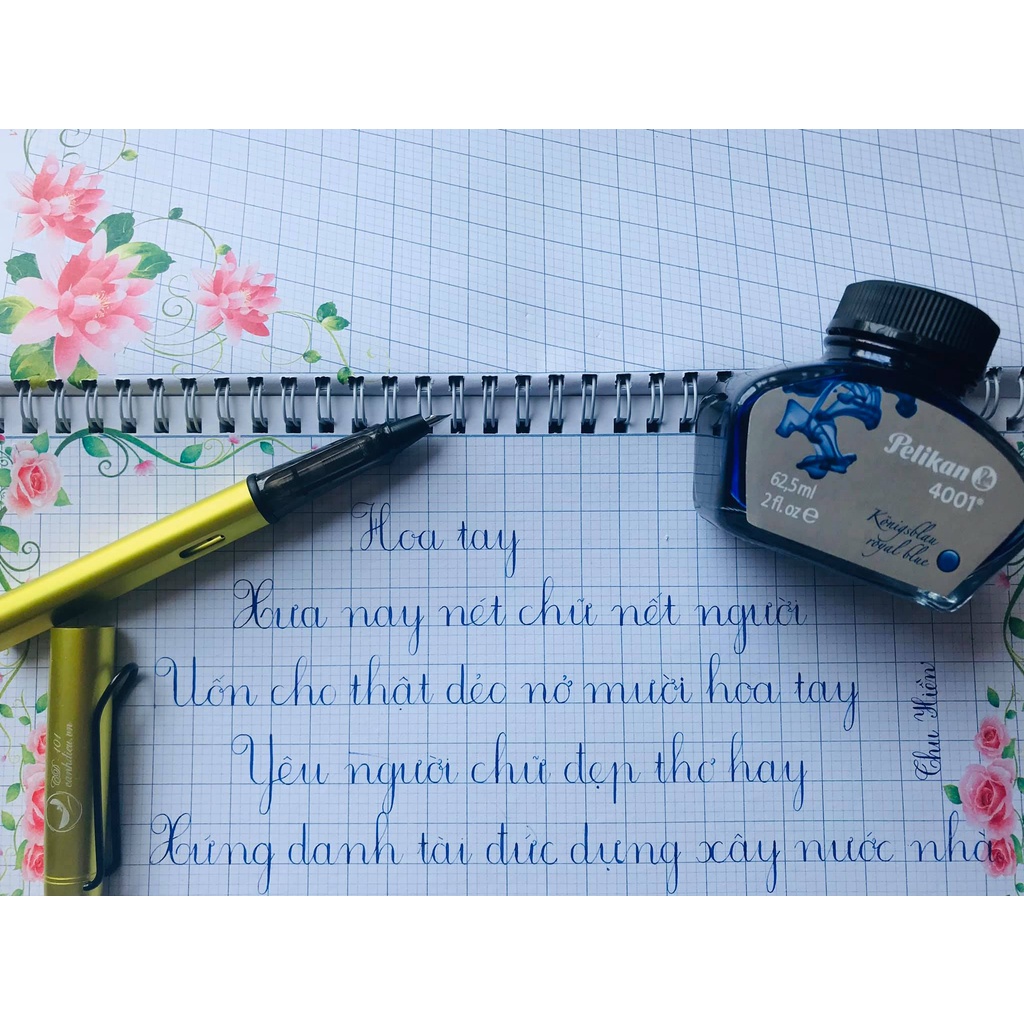 Pelikan
4001®
62,5 ml
2 fl.oz ℮
Königsblau
royal blue
Hoa tay
Xưa nay nét chữ nết người
Uốn cho thật dẻo nở mười hoa tay
Yêu người chữ đẹp thơ hay
Xứng danh tài đức dựng xây nước nhà
Chu Hiền
101
canhdieu.vn